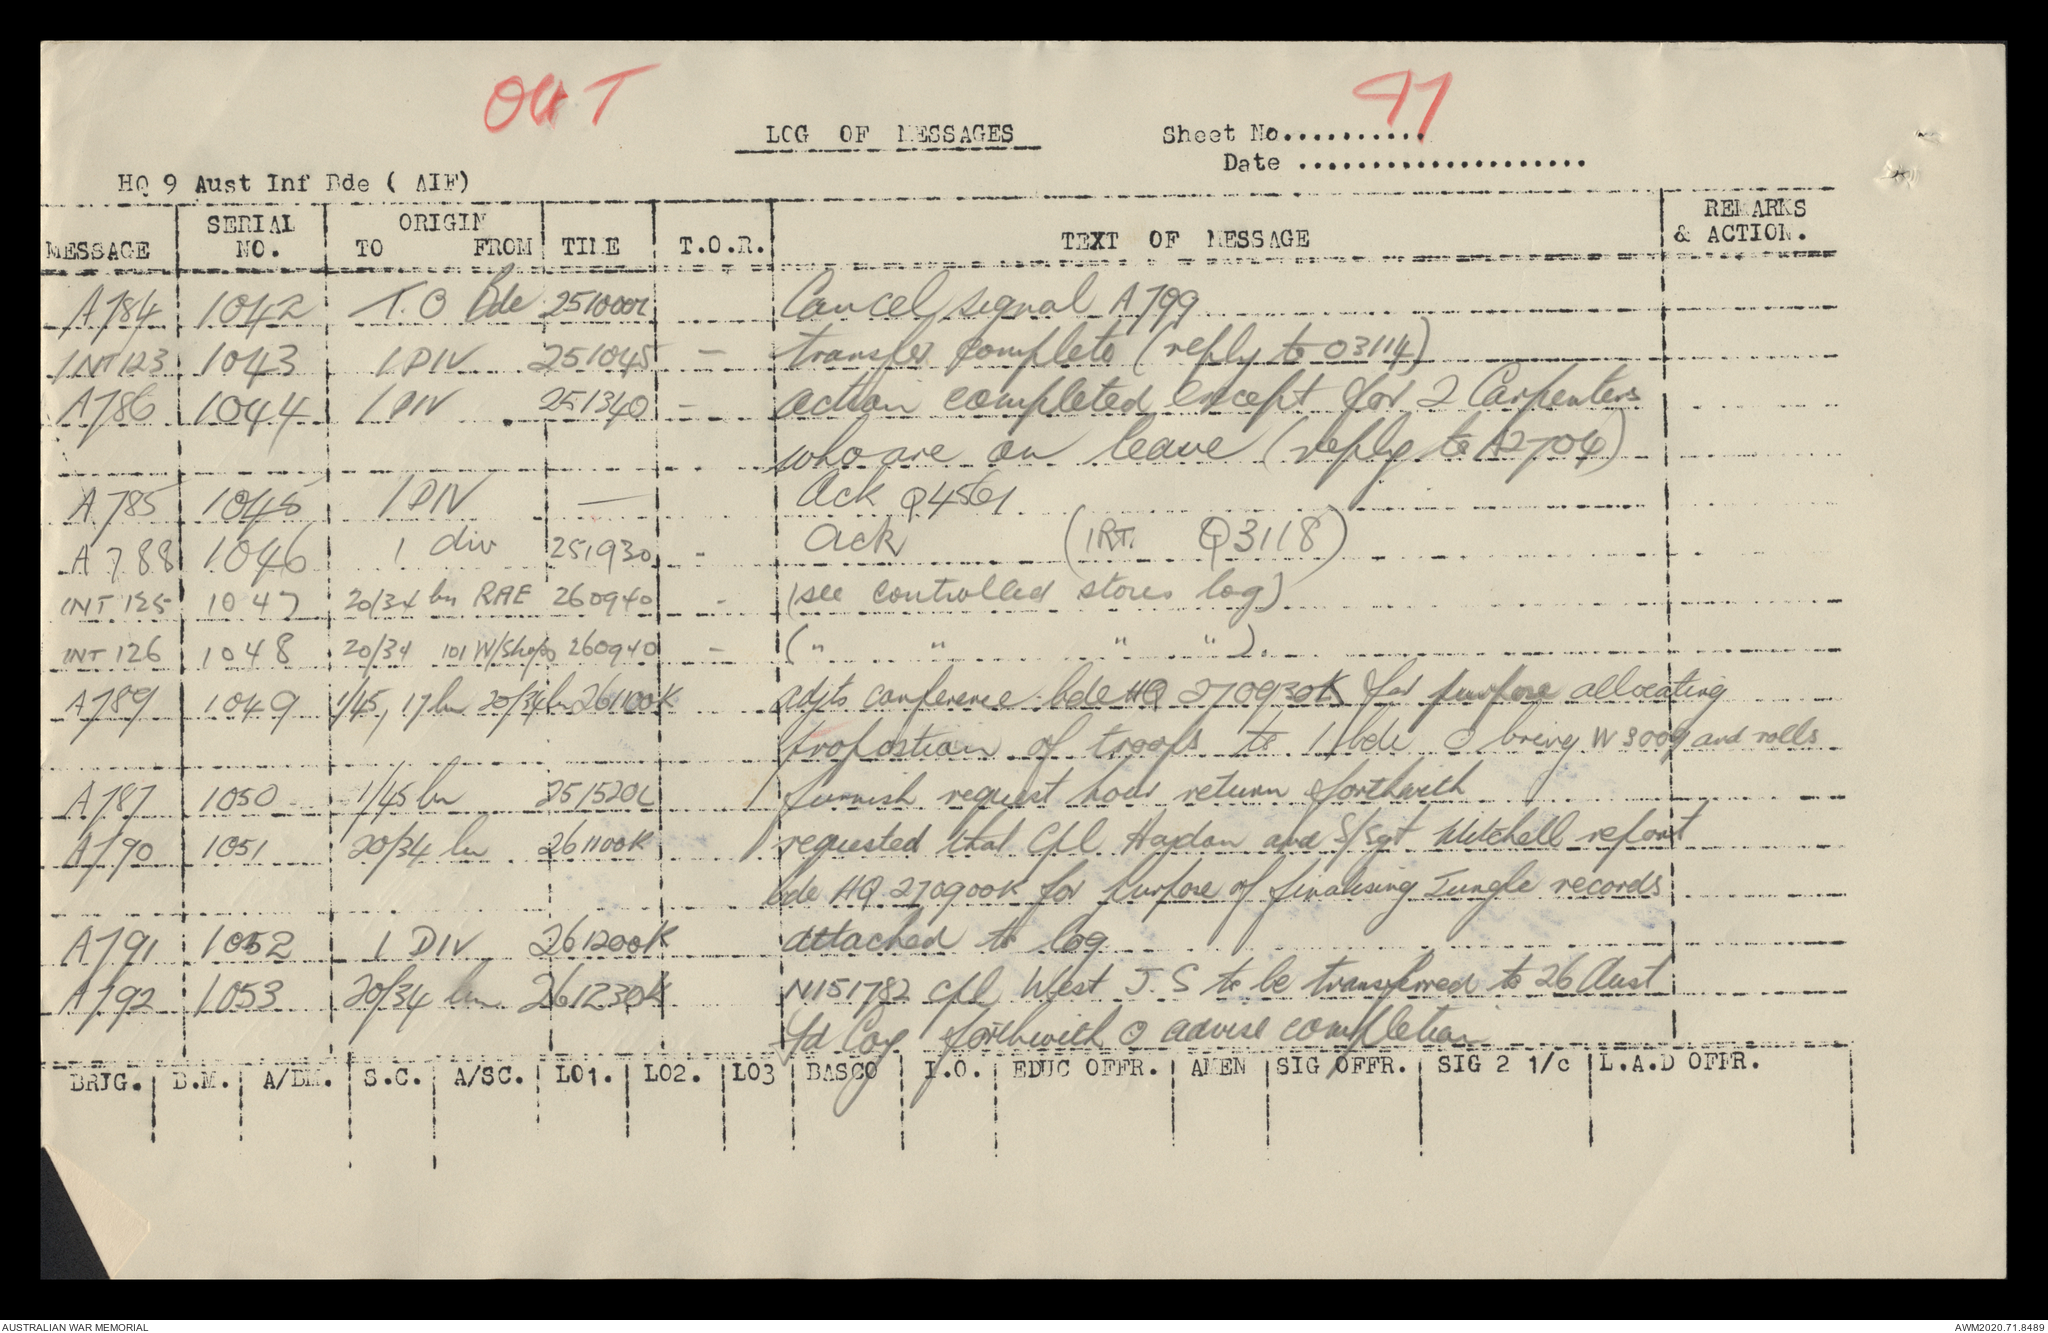 OUT 97
LOG OF MESSAGES Sheet No..........
Date ....................
HQ 9 Aust Inf Bde ( AIF)
MESSAGE SERIAL NO. ORIGIN TO FROM TIME T.O.R. TEXT OF MESSAGE REMARKS & ACTION.
A784 1042 T.O Bde 251000L Cancel signal A799
INT123 1043 1 DIV 251045 - transfer complete (reply to 03114)
A786 1044 1 DIV 251340 - action completed except for 2 Carpenters
who are on leave (reply to A2704)
A785 1045 1 DIV — Ack Q4561
A788 1046 1 div 251930 - Ack (IRT. Q3118)
INT 125 1047 20/34 bn RAE 260940 - (see controlled stores log)
INT 126 1048 20/34 101 W/Shops 260940 - (" " " ").
A789 1049 1/45, 17 bn 20/34 bn 261100K adjts conference bde HQ 270930K for purpose allocating
proportion of troops to 1 bde O bring W3009 and rolls
A787 1050 1/45 bn 251520L furnish request hour return forthwith
A790 1051 20/34 bn 261100K requested that Cpl Haydon and S/Sgt Mitchell report
bde HQ 270900K for purpose of finalising Jungle records
A791 1052 1 DIV 261200K attached to log
A792 1053 20/34 bn 261230K N151782 Cpl West J.S to be transferred to 26 Aust
fd Coy forthwith O advise completion
BRIG. B.M. A/BM. S.C. A/SC. LO1. LO2. LO3 BASCO I.O. EDUC OFFR. AMEN SIG OFFR. SIG 2 1/c L.A.D OFFR.
AUSTRALIAN WAR MEMORIAL AWM2020.71.8489